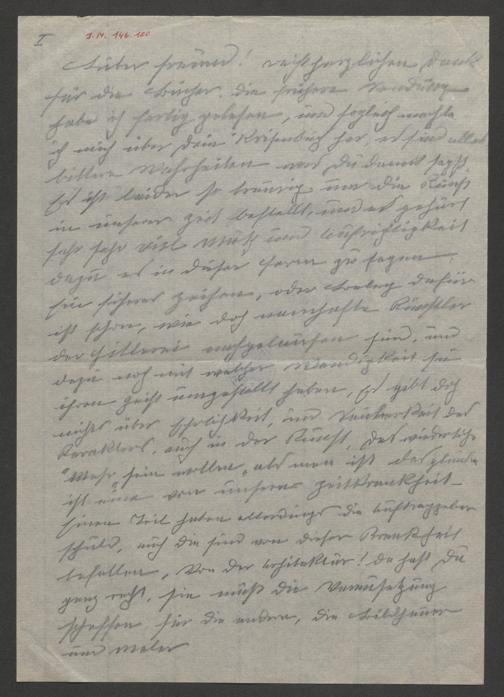 I
I.N. 146.100
Lieber Freund! recht herzlichen Dank
für die Bücher. die frühere Sendung
habe ich fertig gelesen, und sogleich machte
ich mich über dein Krisenbuch her, es sind alles
bittere Wahrheiten was Du damit sagst
Es ist leider so traurig um die Kunst
in unserer Zeit bestellt, und es gehört
sehr sehr viel Mut und Aufrichtigkeit
dazu es in dieser Form zu sagen.
Ein sicheres Zeichen, oder Beleg dafür
ist schon, wie doch namhafte Künstler
der Hitlerei nachgelaufen sind, und
dazu noch mit welcher Wendigkeit sie
ihren Geist umgestellt haben, Es gibt doch
nichts über Ehrlichkeit, und Sauberkeit des
Karakters, auch in der Kunst, das
"Mehr sein wollen, als man ist
ist eine von unseren Zeitkrankheit
Einen Teil haben allerdings die Auftraggeber
schuld, auch die sind von dieser Krankheit
befallen, Von der Architektur! da hast Du
ganz recht, sie muß die Voraussetzung
schaffen für die andern, die Bildhauer
und Maler